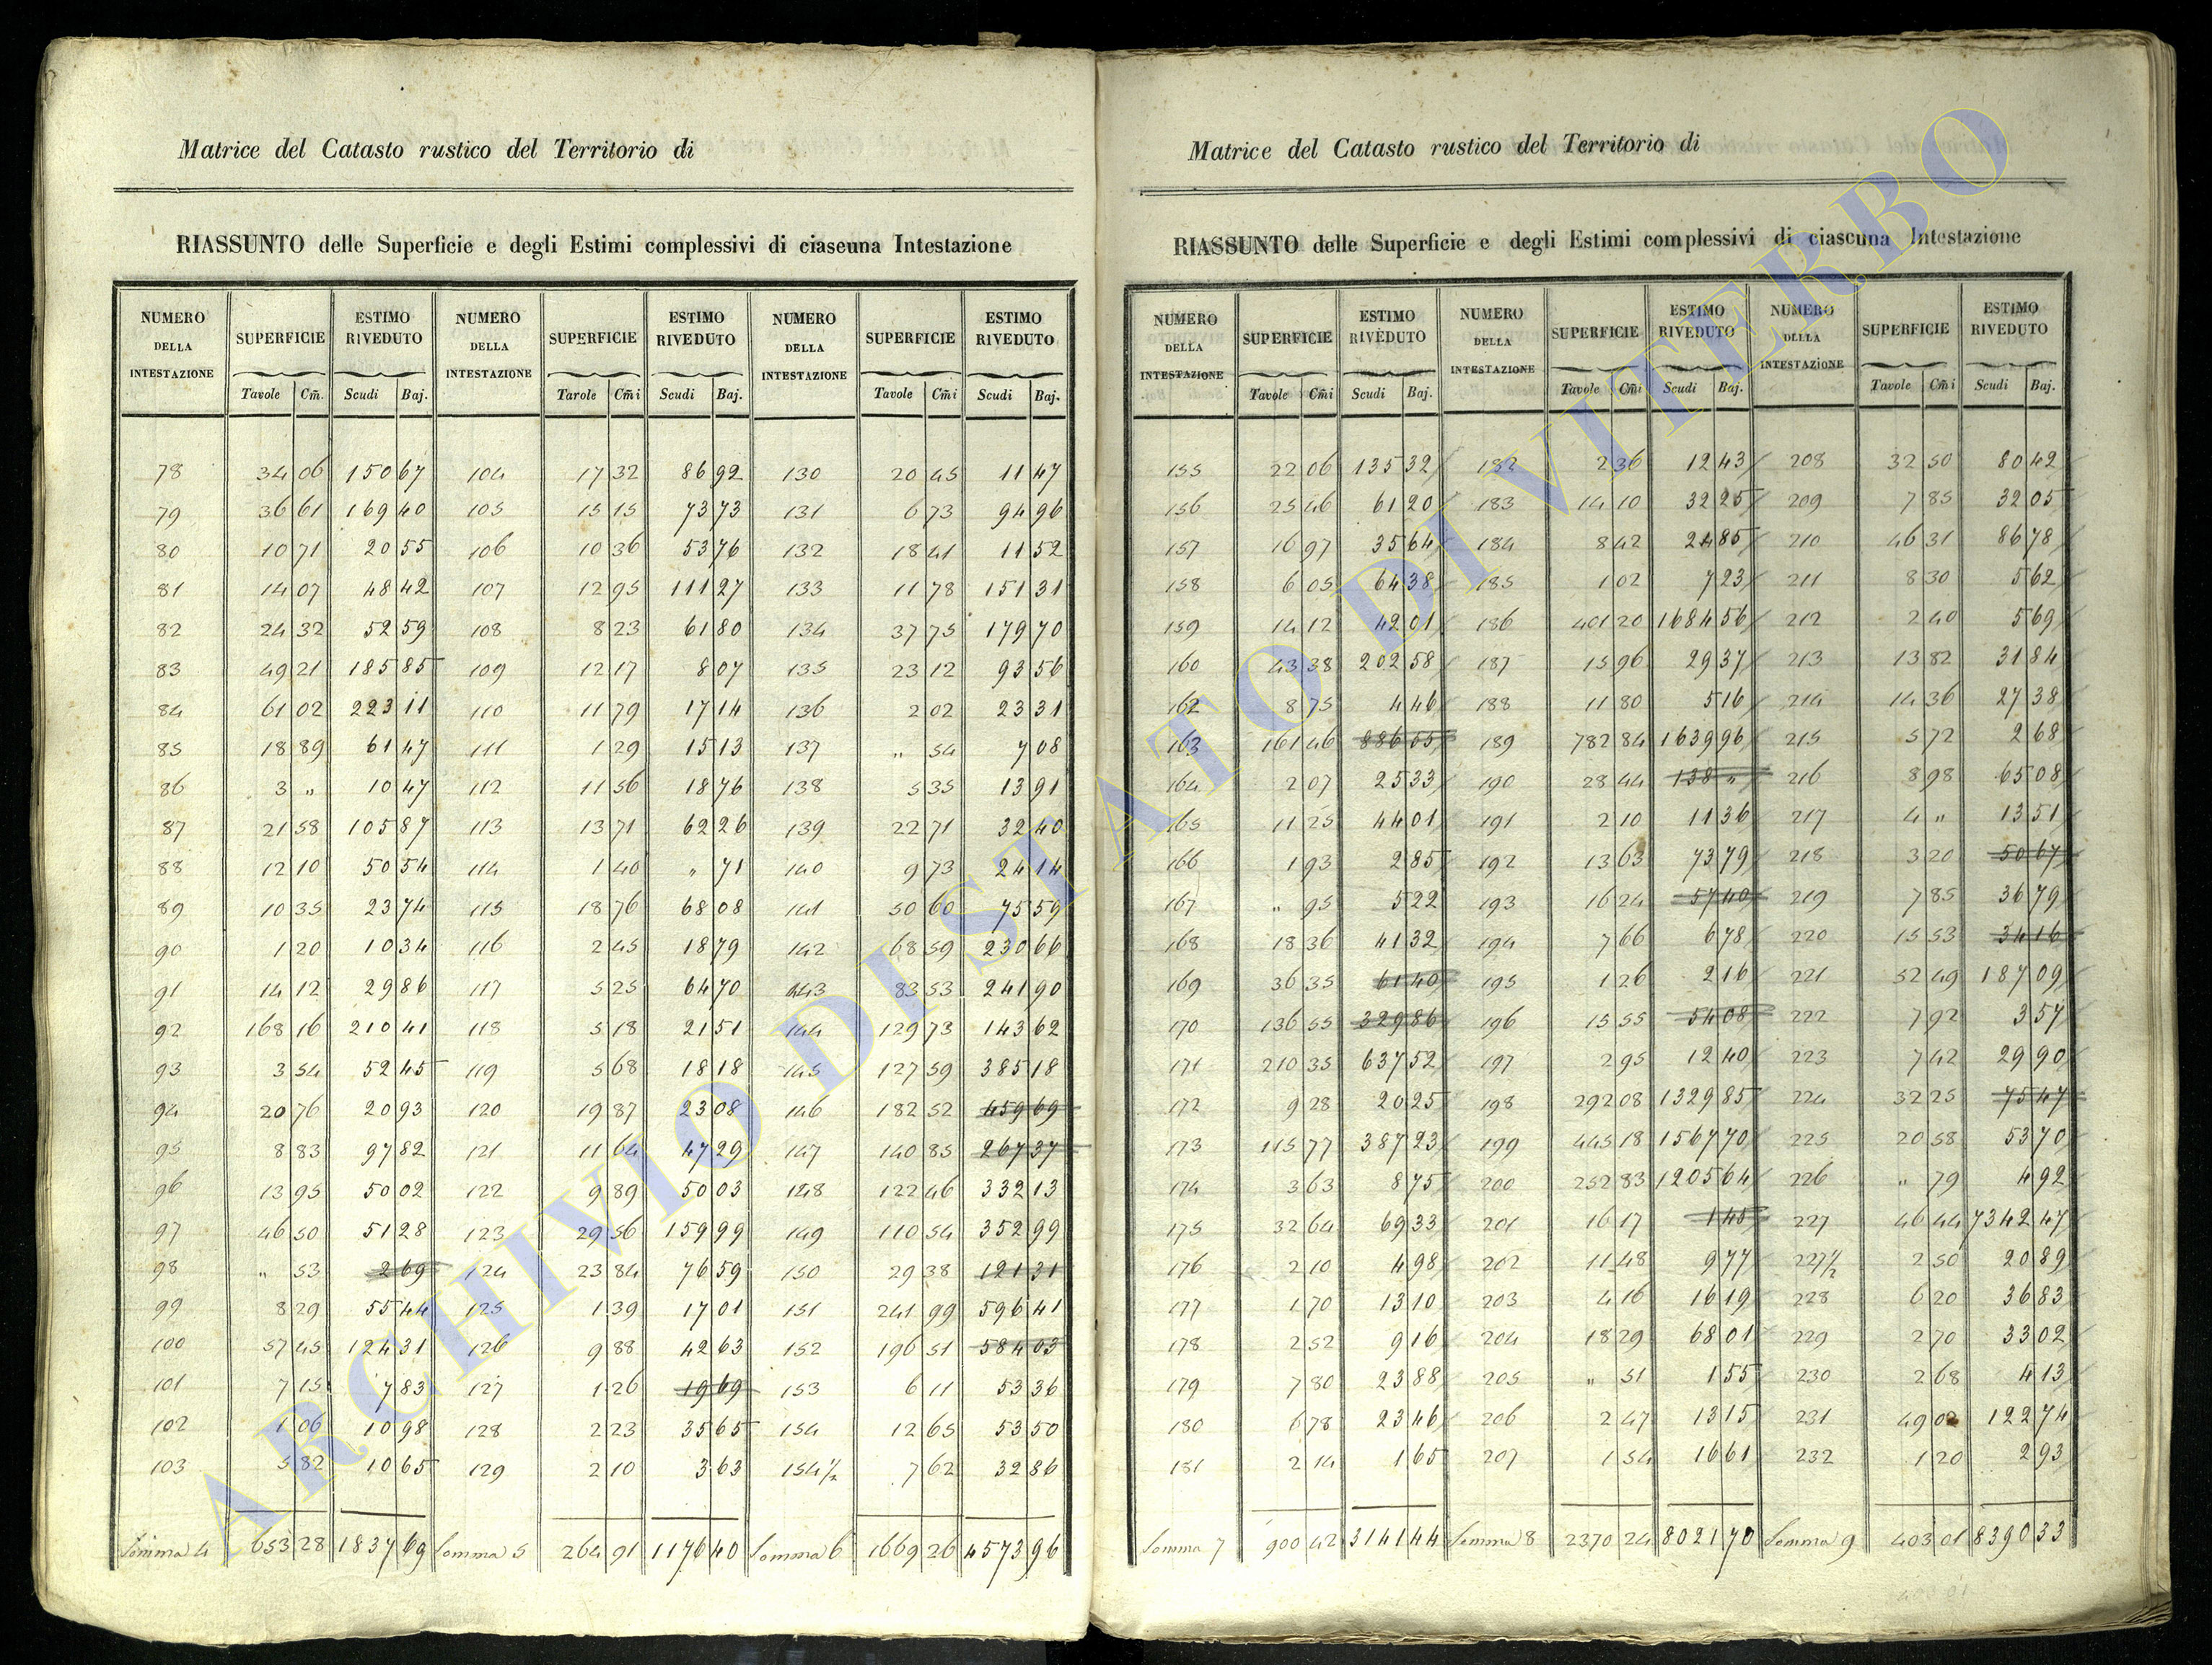 Matrice del Catasto rustico del Territorio di
RIASSUNTO delle Superficie e degli Estimi complessivi di ciascuna Intestazione
NUMERO DELLA INTESTAZIONE SUPERFICIE ESTIMO RIVEDUTO NUMERO DELLA INTESTAZIONE SUPERFICIE ESTIMO RIVEDUTO NUMERO DELLA INTESTAZIONE SUPERFICIE ESTIMO RIVEDUTO
Tavole Cm̃. Scudi Baj. Tavole Cm̃i Scudi Baj. Tavole Cm̃i Scudi Baj.
78 34 06 150 67 104 17 32 86 92 130 20 45 11 47
79 36 61 169 40 105 15 15 73 73 131 6 73 94 96
80 10 71 20 55 106 10 36 53 76 132 18 41 11 52
81 14 07 48 42 107 12 95 111 27 133 11 78 151 31
82 24 32 52 59 108 8 23 61 80 134 37 75 179 70
83 49 21 185 85 109 12 17 8 07 135 23 12 93 56
84 61 02 223 11 110 11 79 17 14 136 2 02 23 31
85 18 89 61 47 111 1 29 15 13 137 " 54 7 08
86 3 " 10 47 112 11 56 18 76 138 5 35 13 91
87 21 58 105 87 113 13 71 62 26 139 22 71 32 40
88 12 10 50 54 114 1 40 " 71 140 9 73 24 14
89 10 35 23 74 115 18 76 68 08 141 50 60 75 59
90 1 20 10 34 116 2 45 18 79 142 68 59 230 66
91 14 12 29 86 117 5 25 64 70 143 83 53 241 90
92 168 16 210 41 118 5 18 21 51 144 129 73 143 62
93 3 54 52 45 119 5 68 18 18 145 127 59 385 18
94 20 76 20 93 120 19 87 23 08 146 182 52 459 69
95 8 83 97 82 121 11 64 47 29 147 140 85 267 37
96 13 95 50 02 122 9 89 50 03 148 122 46 332 13
97 46 50 51 28 123 29 56 159 99 149 110 54 352 99
98 " 53 2 69 124 23 84 76 59 150 29 38 121 31
99 8 29 55 44 125 1 39 17 01 151 241 99 596 41
100 57 45 124 31 126 9 88 42 63 152 196 51 584 03
101 7 15 7 83 127 1 26 19 69 153 6 11 53 36
102 1 06 10 98 128 2 23 35 65 154 12 65 53 50
103 5 82 10 65 129 2 10 3 63 154 1/2 7 62 32 86
Somma 4 653 28 1837 69 Somma 5 264 91 1176 40 Somma 6 1669 26 4573 96
Matrice del Catasto rustico del Territorio di
RIASSUNTO delle Superficie e degli Estimi complessivi di ciascuna Intestazione
NUMERO DELLA INTESTAZIONE SUPERFICIE ESTIMO RIVEDUTO NUMERO DELLA INTESTAZIONE SUPERFICIE ESTIMO RIVEDUTO NUMERO DELLA INTESTAZIONE SUPERFICIE ESTIMO RIVEDUTO
Tavole Cm̃i Scudi Baj. Tavole Cm̃i Scudi Baj. Tavole Cm̃i Scudi Baj.
155 22 06 135 32 182 2 36 12 43 208 32 50 80 42
156 25 46 61 20 183 14 10 32 25 209 7 85 32 05
157 16 97 35 64 184 8 42 24 85 210 46 31 86 78
158 6 05 64 38 185 1 02 7 23 211 8 30 5 62
159 14 12 42 01 186 401 20 1684 56 212 2 40 5 69
160 43 38 202 58 187 15 96 29 37 213 13 82 31 84
162 8 75 4 46 188 11 80 5 16 214 14 36 27 38
163 161 46 886 65 189 782 84 1639 96 215 5 72 2 68
164 2 07 25 33 190 28 44 138 " 216 8 98 65 08
165 11 25 44 01 191 2 10 11 36 217 4 " 13 51
166 1 93 2 85 192 13 63 73 79 218 3 20 50 67
167 " 95 5 22 193 16 24 57 40 219 7 85 36 79
168 18 36 41 32 194 7 66 6 78 220 15 53 34 16
169 36 35 61 40 195 1 26 2 16 221 52 49 187 09
170 136 55 329 86 196 15 55 54 08 222 7 92 3 57
171 210 35 637 52 197 2 95 12 40 223 7 42 29 90
172 9 28 20 25 198 292 08 1329 85 224 32 25 75 47
173 115 77 387 23 199 445 18 1567 70 225 20 58 53 70
174 3 63 8 75 200 252 83 1205 64 226 " 79 4 92
175 32 64 69 33 201 16 17 1 45 227 46 44 7342 47
176 2 10 4 98 202 11 48 9 77 227 1/2 2 50 20 89
177 1 70 13 10 203 4 16 16 19 228 6 20 36 83
178 2 52 9 16 204 18 29 68 01 229 2 70 33 02
179 7 80 23 88 205 " 51 1 55 230 2 68 4 13
180 6 78 23 46 206 2 47 13 15 231 49 02 122 74
181 2 14 1 65 207 1 54 16 61 232 1 20 2 93
Somma 7 900 42 3141 44 Somma 8 2370 24 8021 70 Somma 9 403 01 8390 33
ARCHIVIO DI STATO DI VITERBO